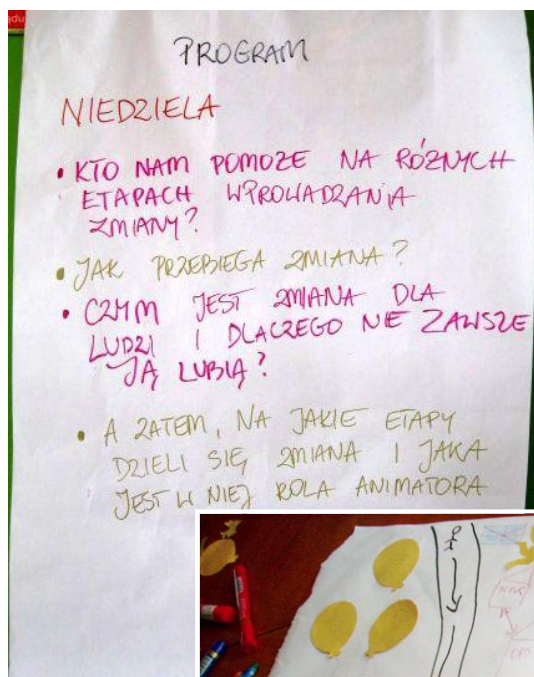 PROGRAM
NIEDZIELA
• KTO NAM POMOŻE NA RÓŻNYCH
ETAPACH WPROWADZANIA
ZMIANY?
• JAK PRZEBIEGA ZMIANA?
• CZYM JEST ZMIANA DLA
LUDZI I DLACZEGO NIE ZAWSZE
JĄ LUBIĄ?
• A ZATEM, NA JAKIE ETAPY
DZIELI SIĘ ZMIANA I JAKA
JEST W NIEJ ROLA ANIMATORA